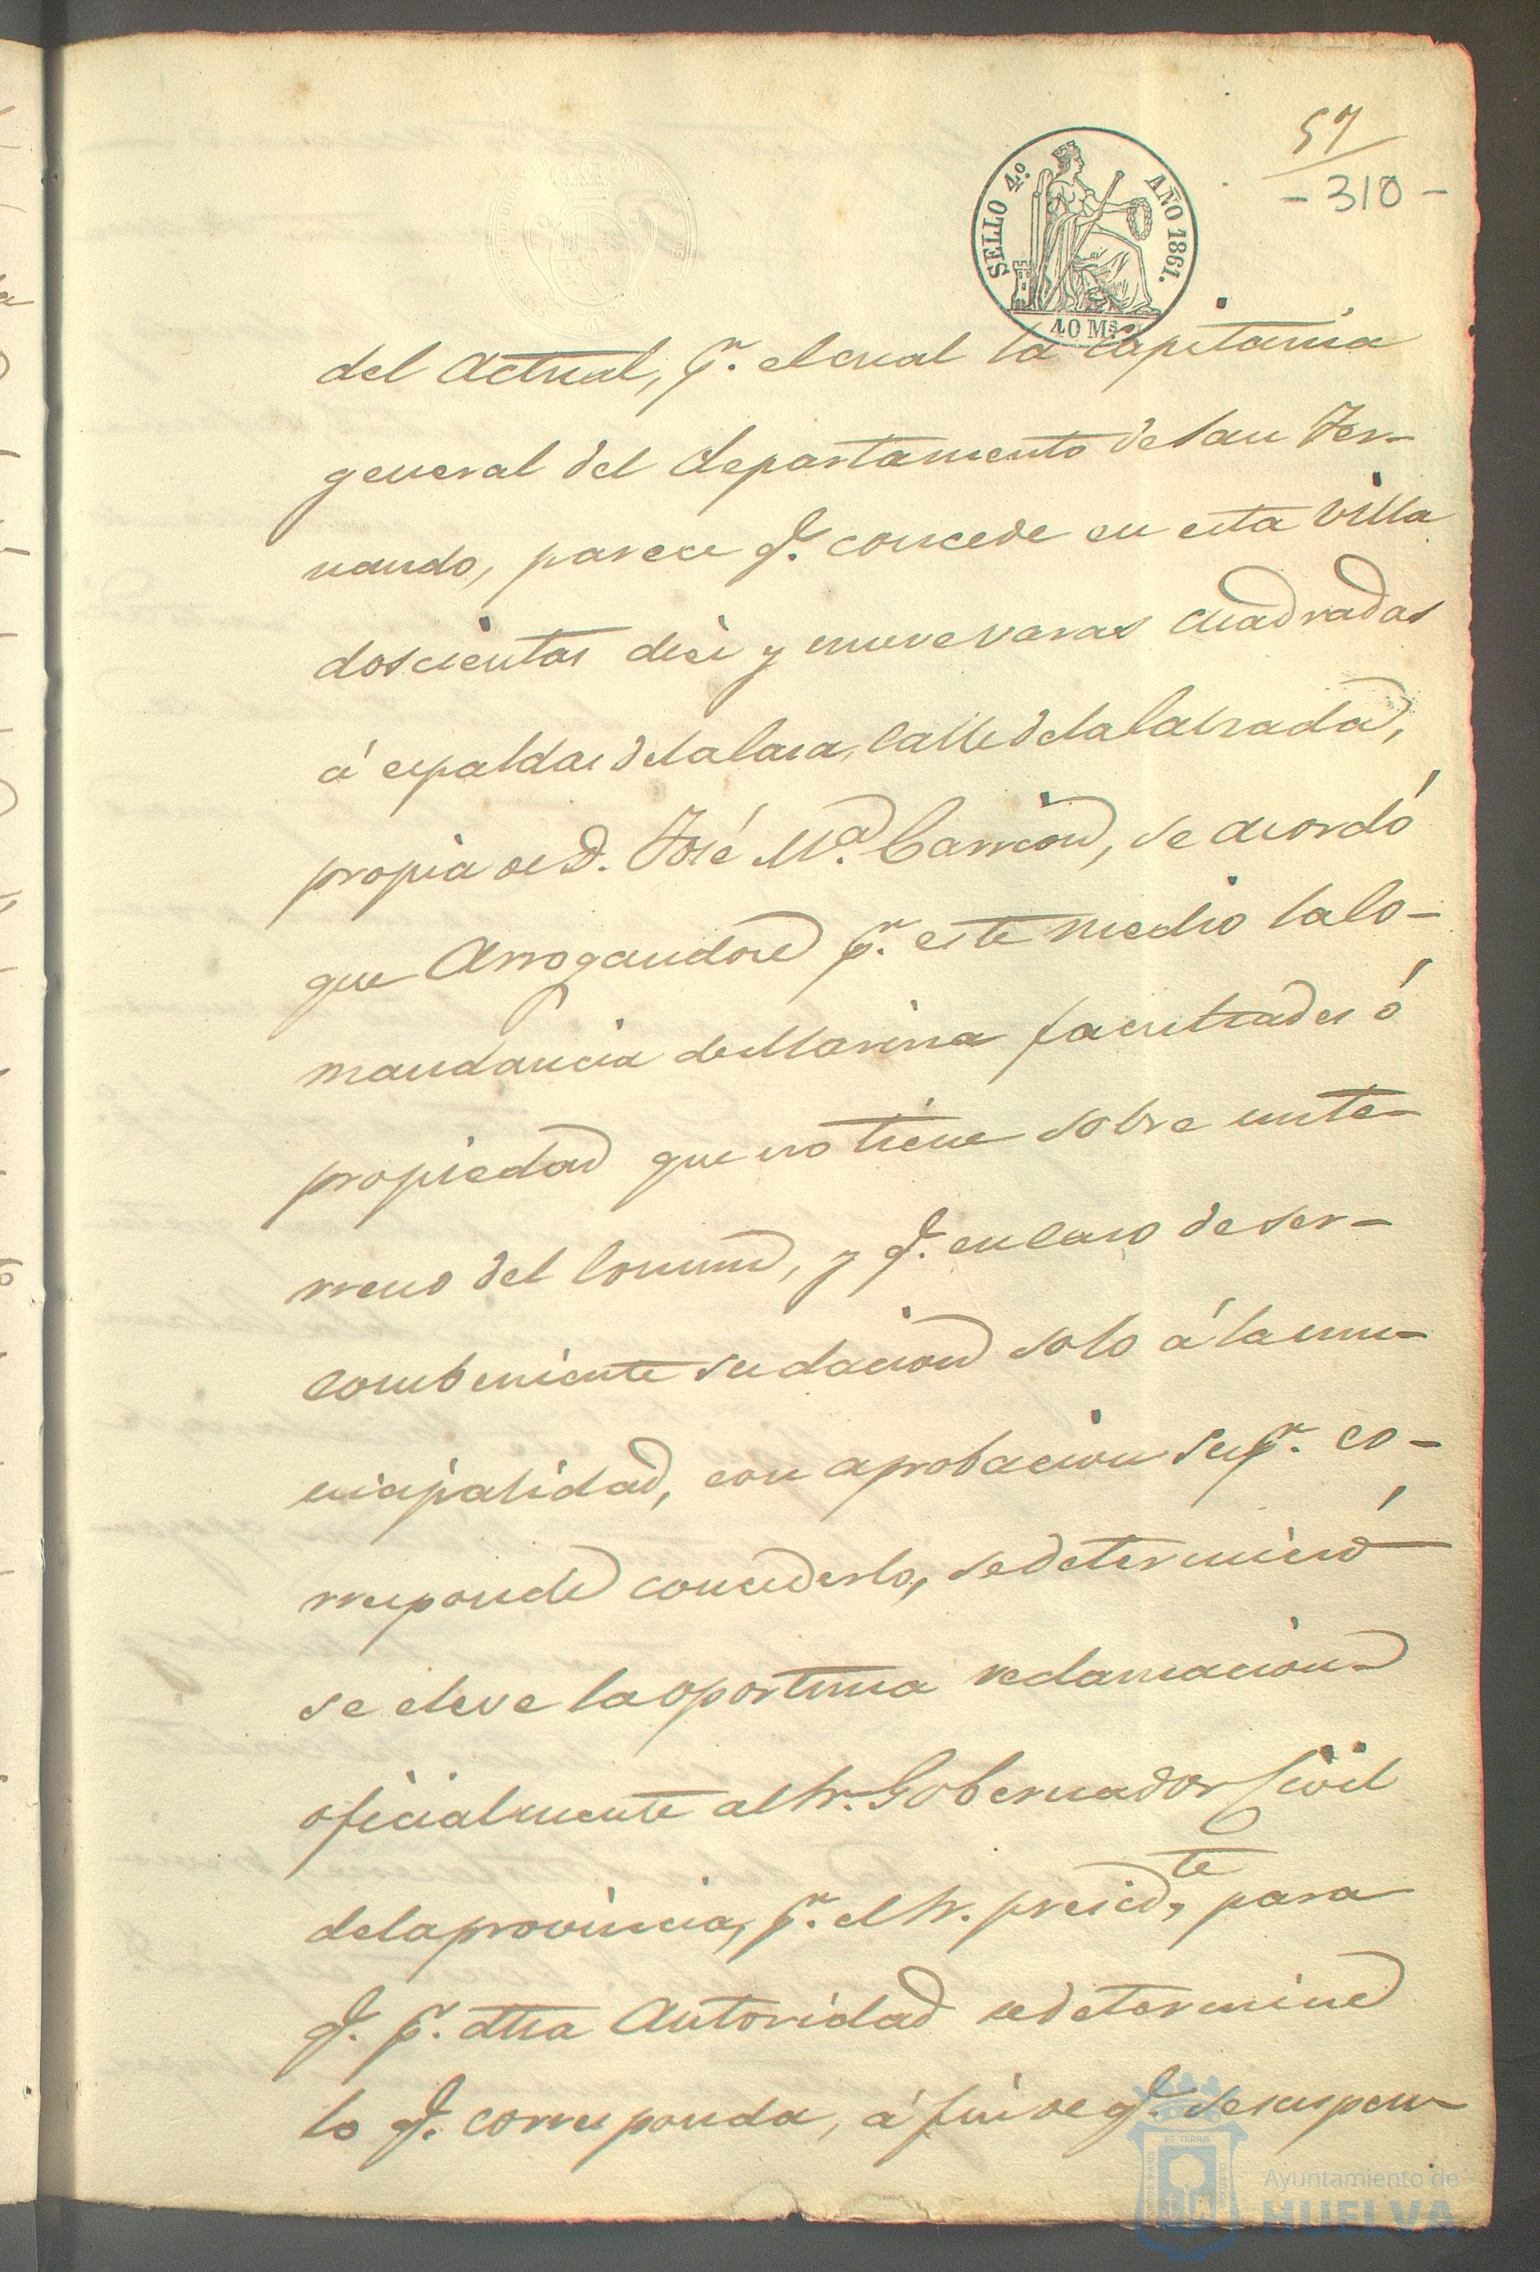 57
- 310 -
SELLO 4.º AÑO 1861.
40 Ms.
del Actual, pr. el cual la capitania
general del departamento de San Fer-
nando, parece q. concede en esta Villa
doscientas diez y nueve varas cuadradas
á espaldas de la Casa, Calle de la Calzada,
propia de D. José Ma. Carrion, se acordó
que Arrogandose pr. este medio la Co-
mandancia de Marina facultades ó
propiedad que no tiene sobre un te-
rreno del Comun, y q. en caso de ser
combeniente su dacion solo á la mu-
nicipalidad, con aprobacion supr. co-
rresponde concederlo, se determinó
se eleve la oportuna reclamacion
oficialmente al Sr. Gobernador Civil
de la provincia, pr. el Sr. presidte. para
q. pr. dha Autoridad se determine
lo q. corresponda, á fin de q. se suspen-
Ayuntamiento de
HUELVA